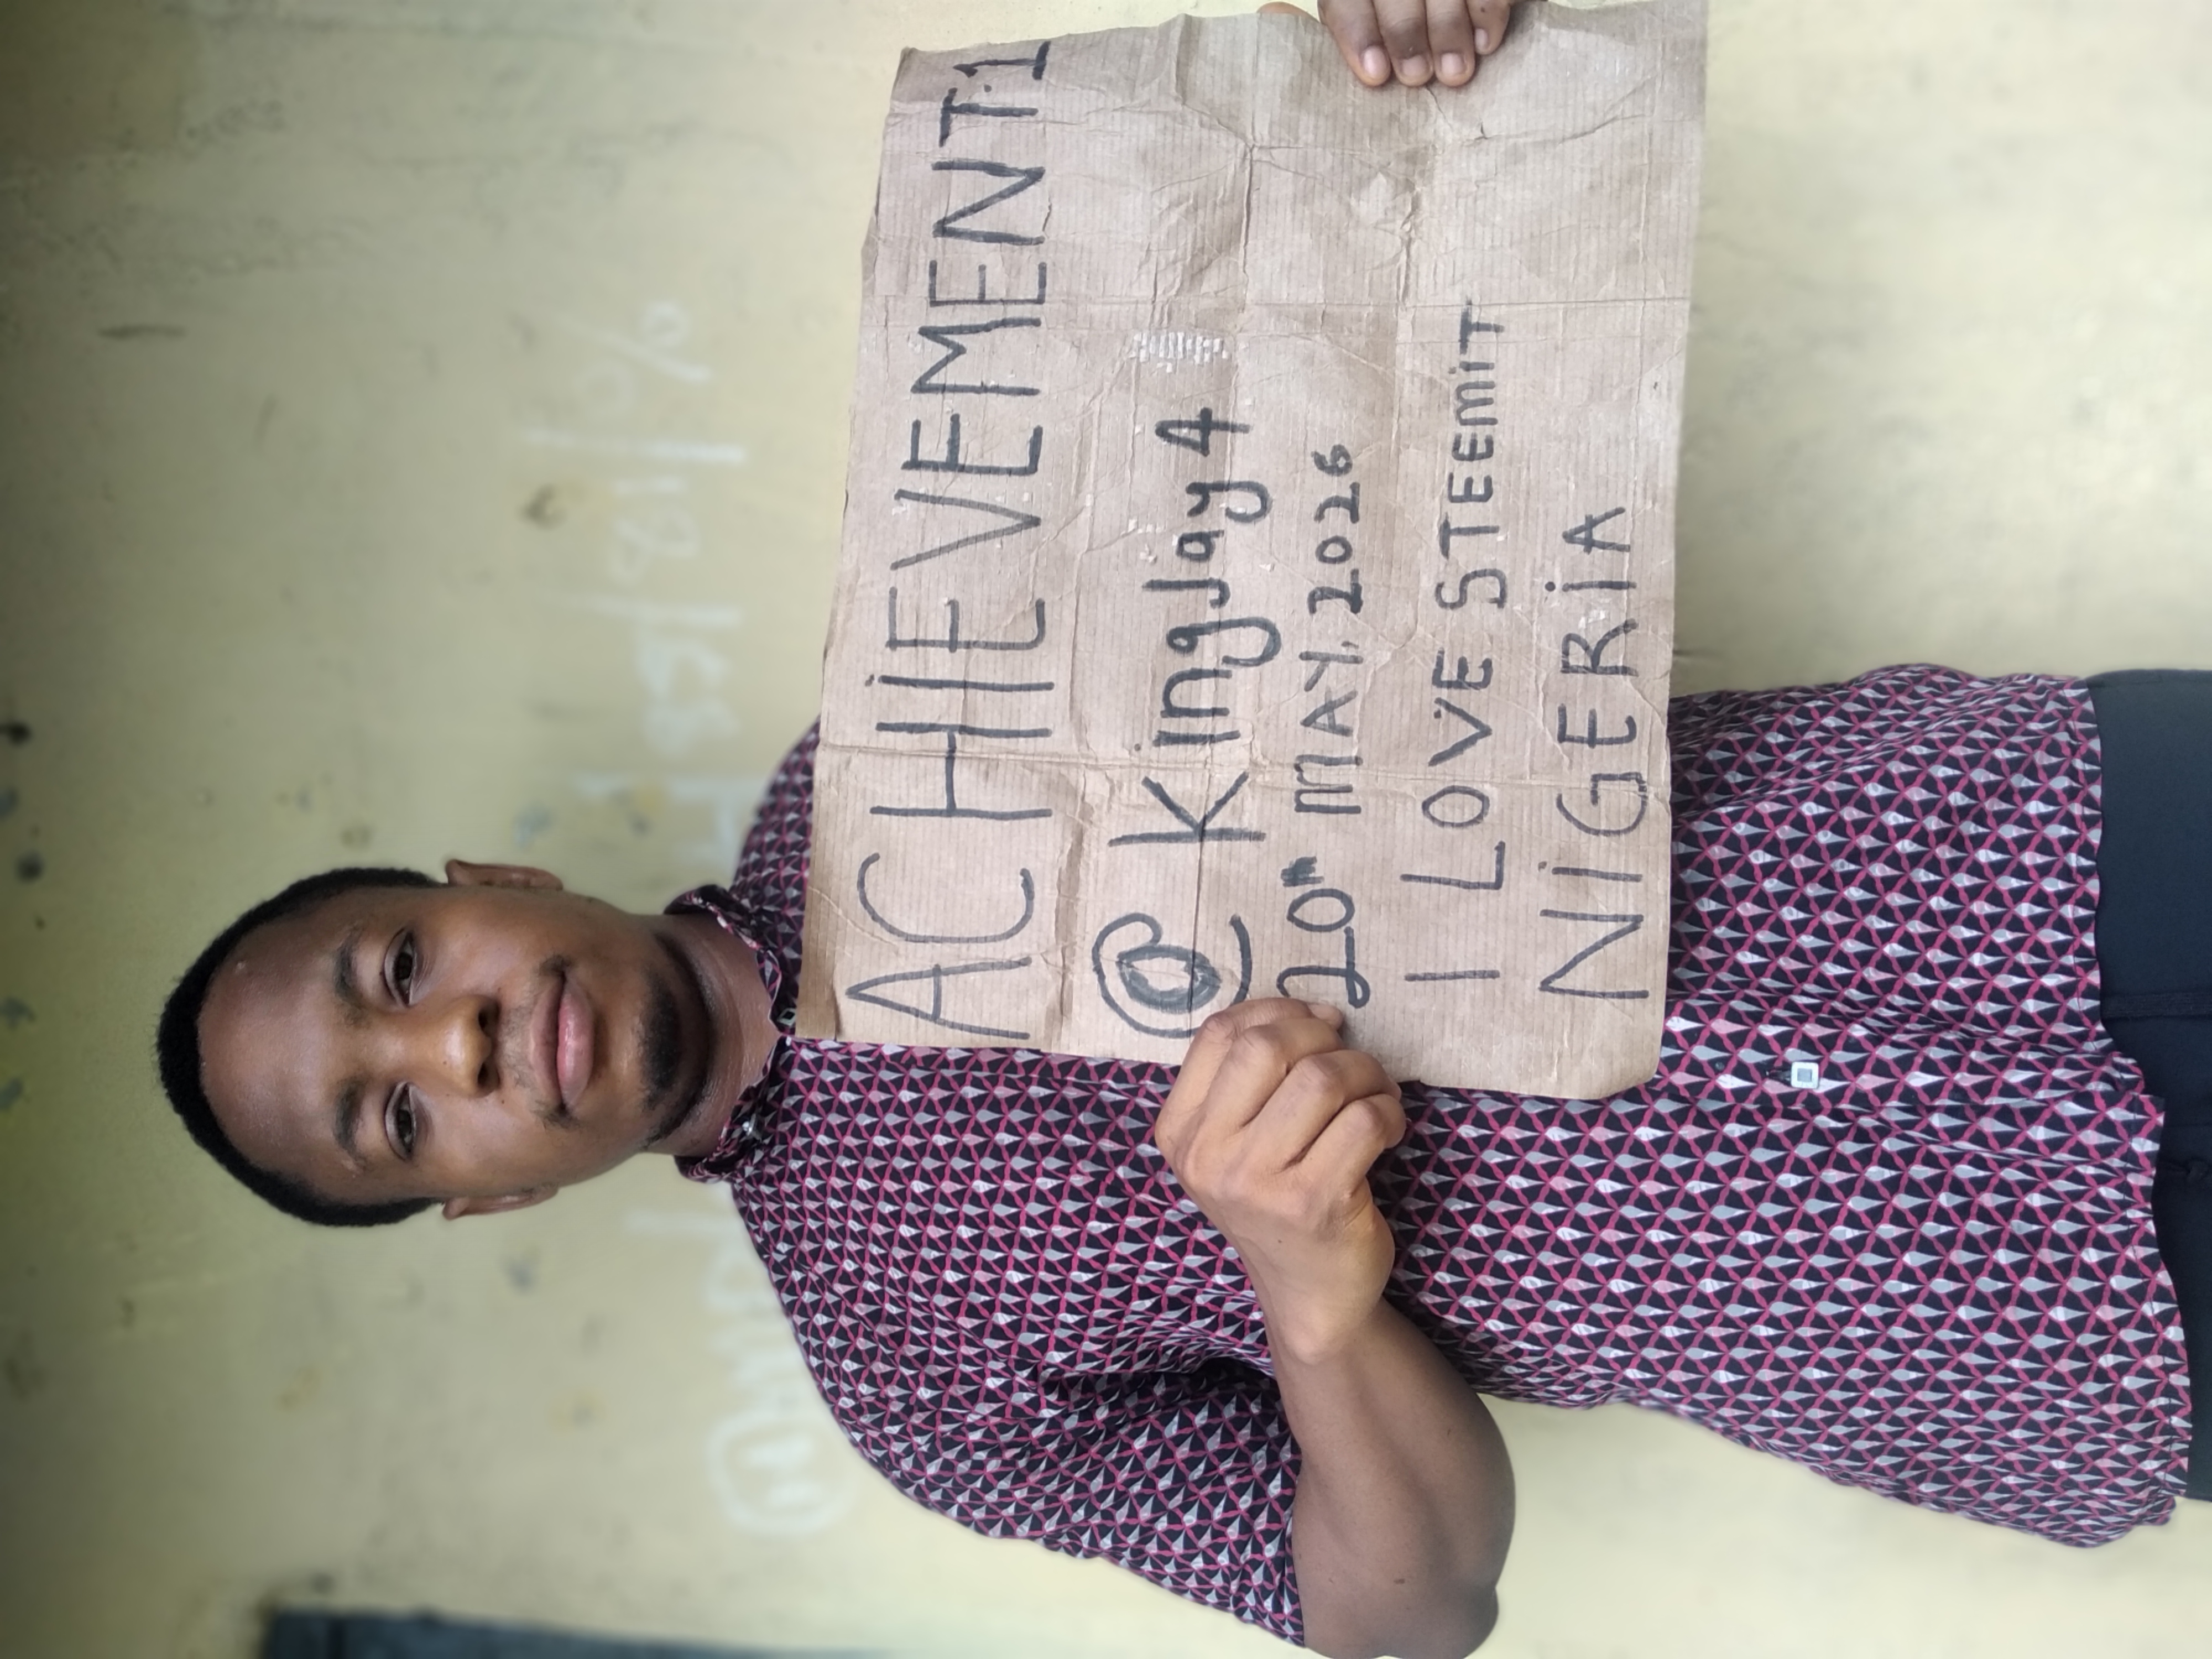 ACHIEVEMENT.1
@Kingjay4
20TH MAY, 2026
I LOVE STEEMIT
NIGERIA